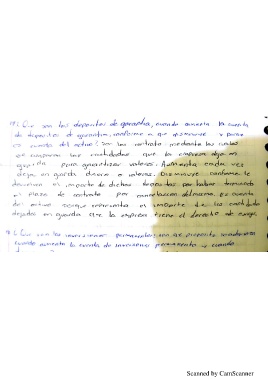 Que son los depositos de garantia, cuando aumenta la cuenta
de depositos de garantia, conforme a que disminuye y porque
es cuenta del activo? Son los contratos mediante los cuales
se amparan las cantidades que la empresa deja en
guarda para garantizar valores. Aumenta cada vez
deja en guarda dinero o valores. Disminuye conforme le
devuelven el importe de dichos depositos por haber terminado
el plazo de contrato por cancelacion del mismo. Es cuenta
del activo porque representa el importe de las cantidades
dejadas en guarda que la empresa tiene el derecho de exigir.
Que son las inversiones permanentes, con se presenta
cuando aumenta la cuenta de inversiones permanentes y cuando
Scanned by CamScanner